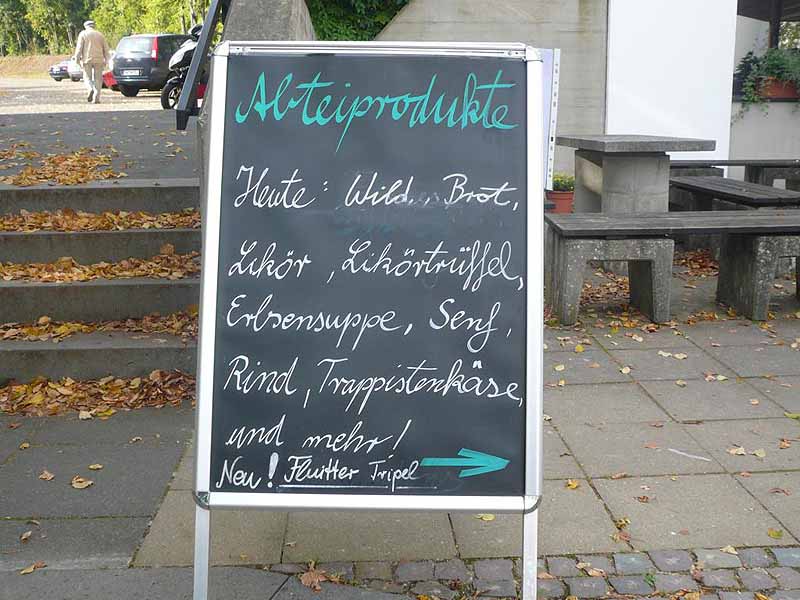 Abteiprodukte
Heute: Wild, Brot,
Likör, Likörtrüffel,
Erbsensuppe, Senf,
Rind, Trappistenkäse,
und mehr!
Neu! Fluitter Tripel